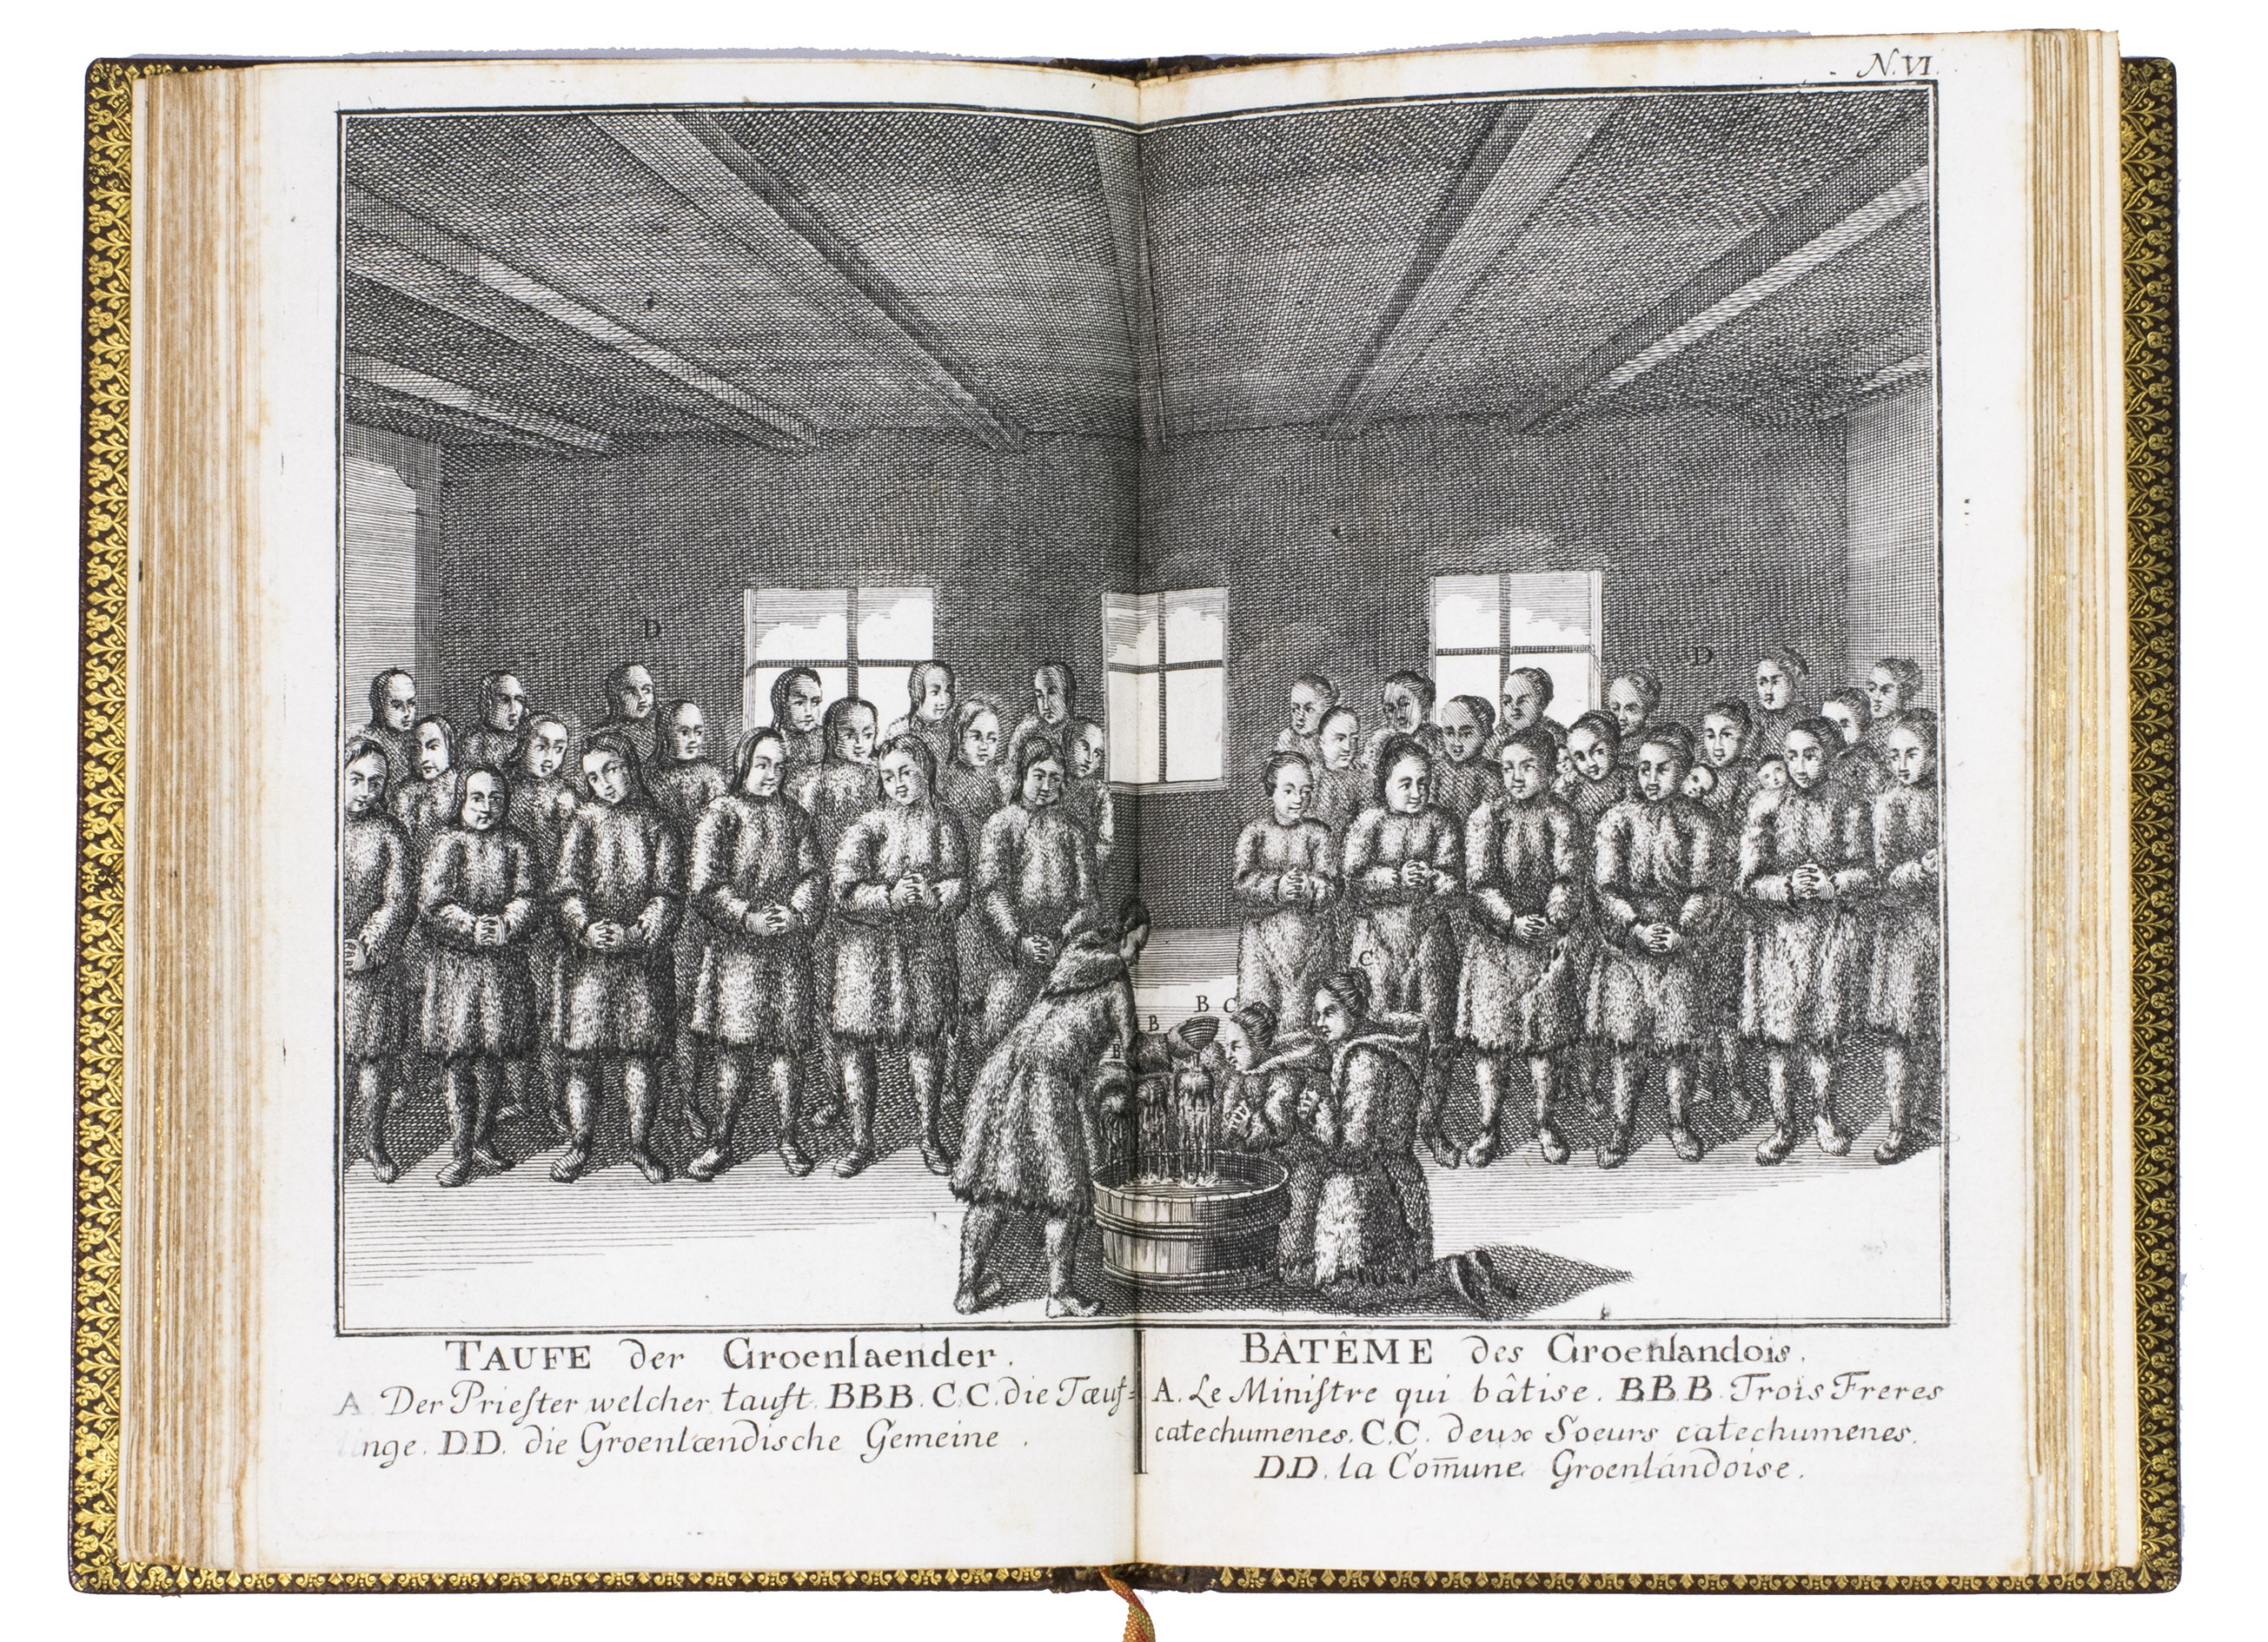 N.VI.
D
D
C
B C
B
B
TAUFE der Groenlaender.
A Der Prieſter welcher tauft. BBB. C.C. die Tæuf=
linge. D.D. die Groenlændische Gemeine.
BÂTÊME des Groenlandois.
A. Le Miniſtre qui bâtise. B.B.B. Trois Freres
catechumenes. C.C. deux Soeurs catechumenes.
D.D. la Com̄une Groenlandoise.